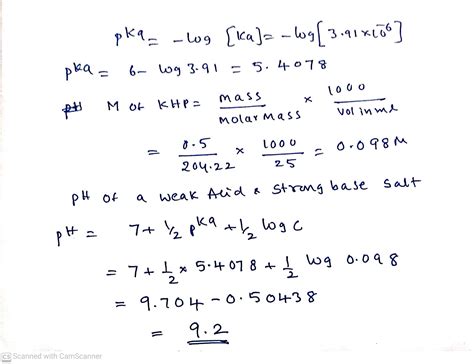 pka = -log [ka] = -log[3.91×10⁻⁶]
pka = 6- log 3.91 = 5.4078
pH M of KHP = mass / molar mass × 1000 / vol in ml
= 0.5 / 204.22 × 1000 / 25 = 0.098M
pH of a weak Acid & strong base salt
pH = 7+ 1/2 pka + 1/2 log c
= 7+ 1/2 × 5.4078 + 1/2 log 0.098
= 9.704 - 0.50438
= 9.2
CS Scanned with CamScanner